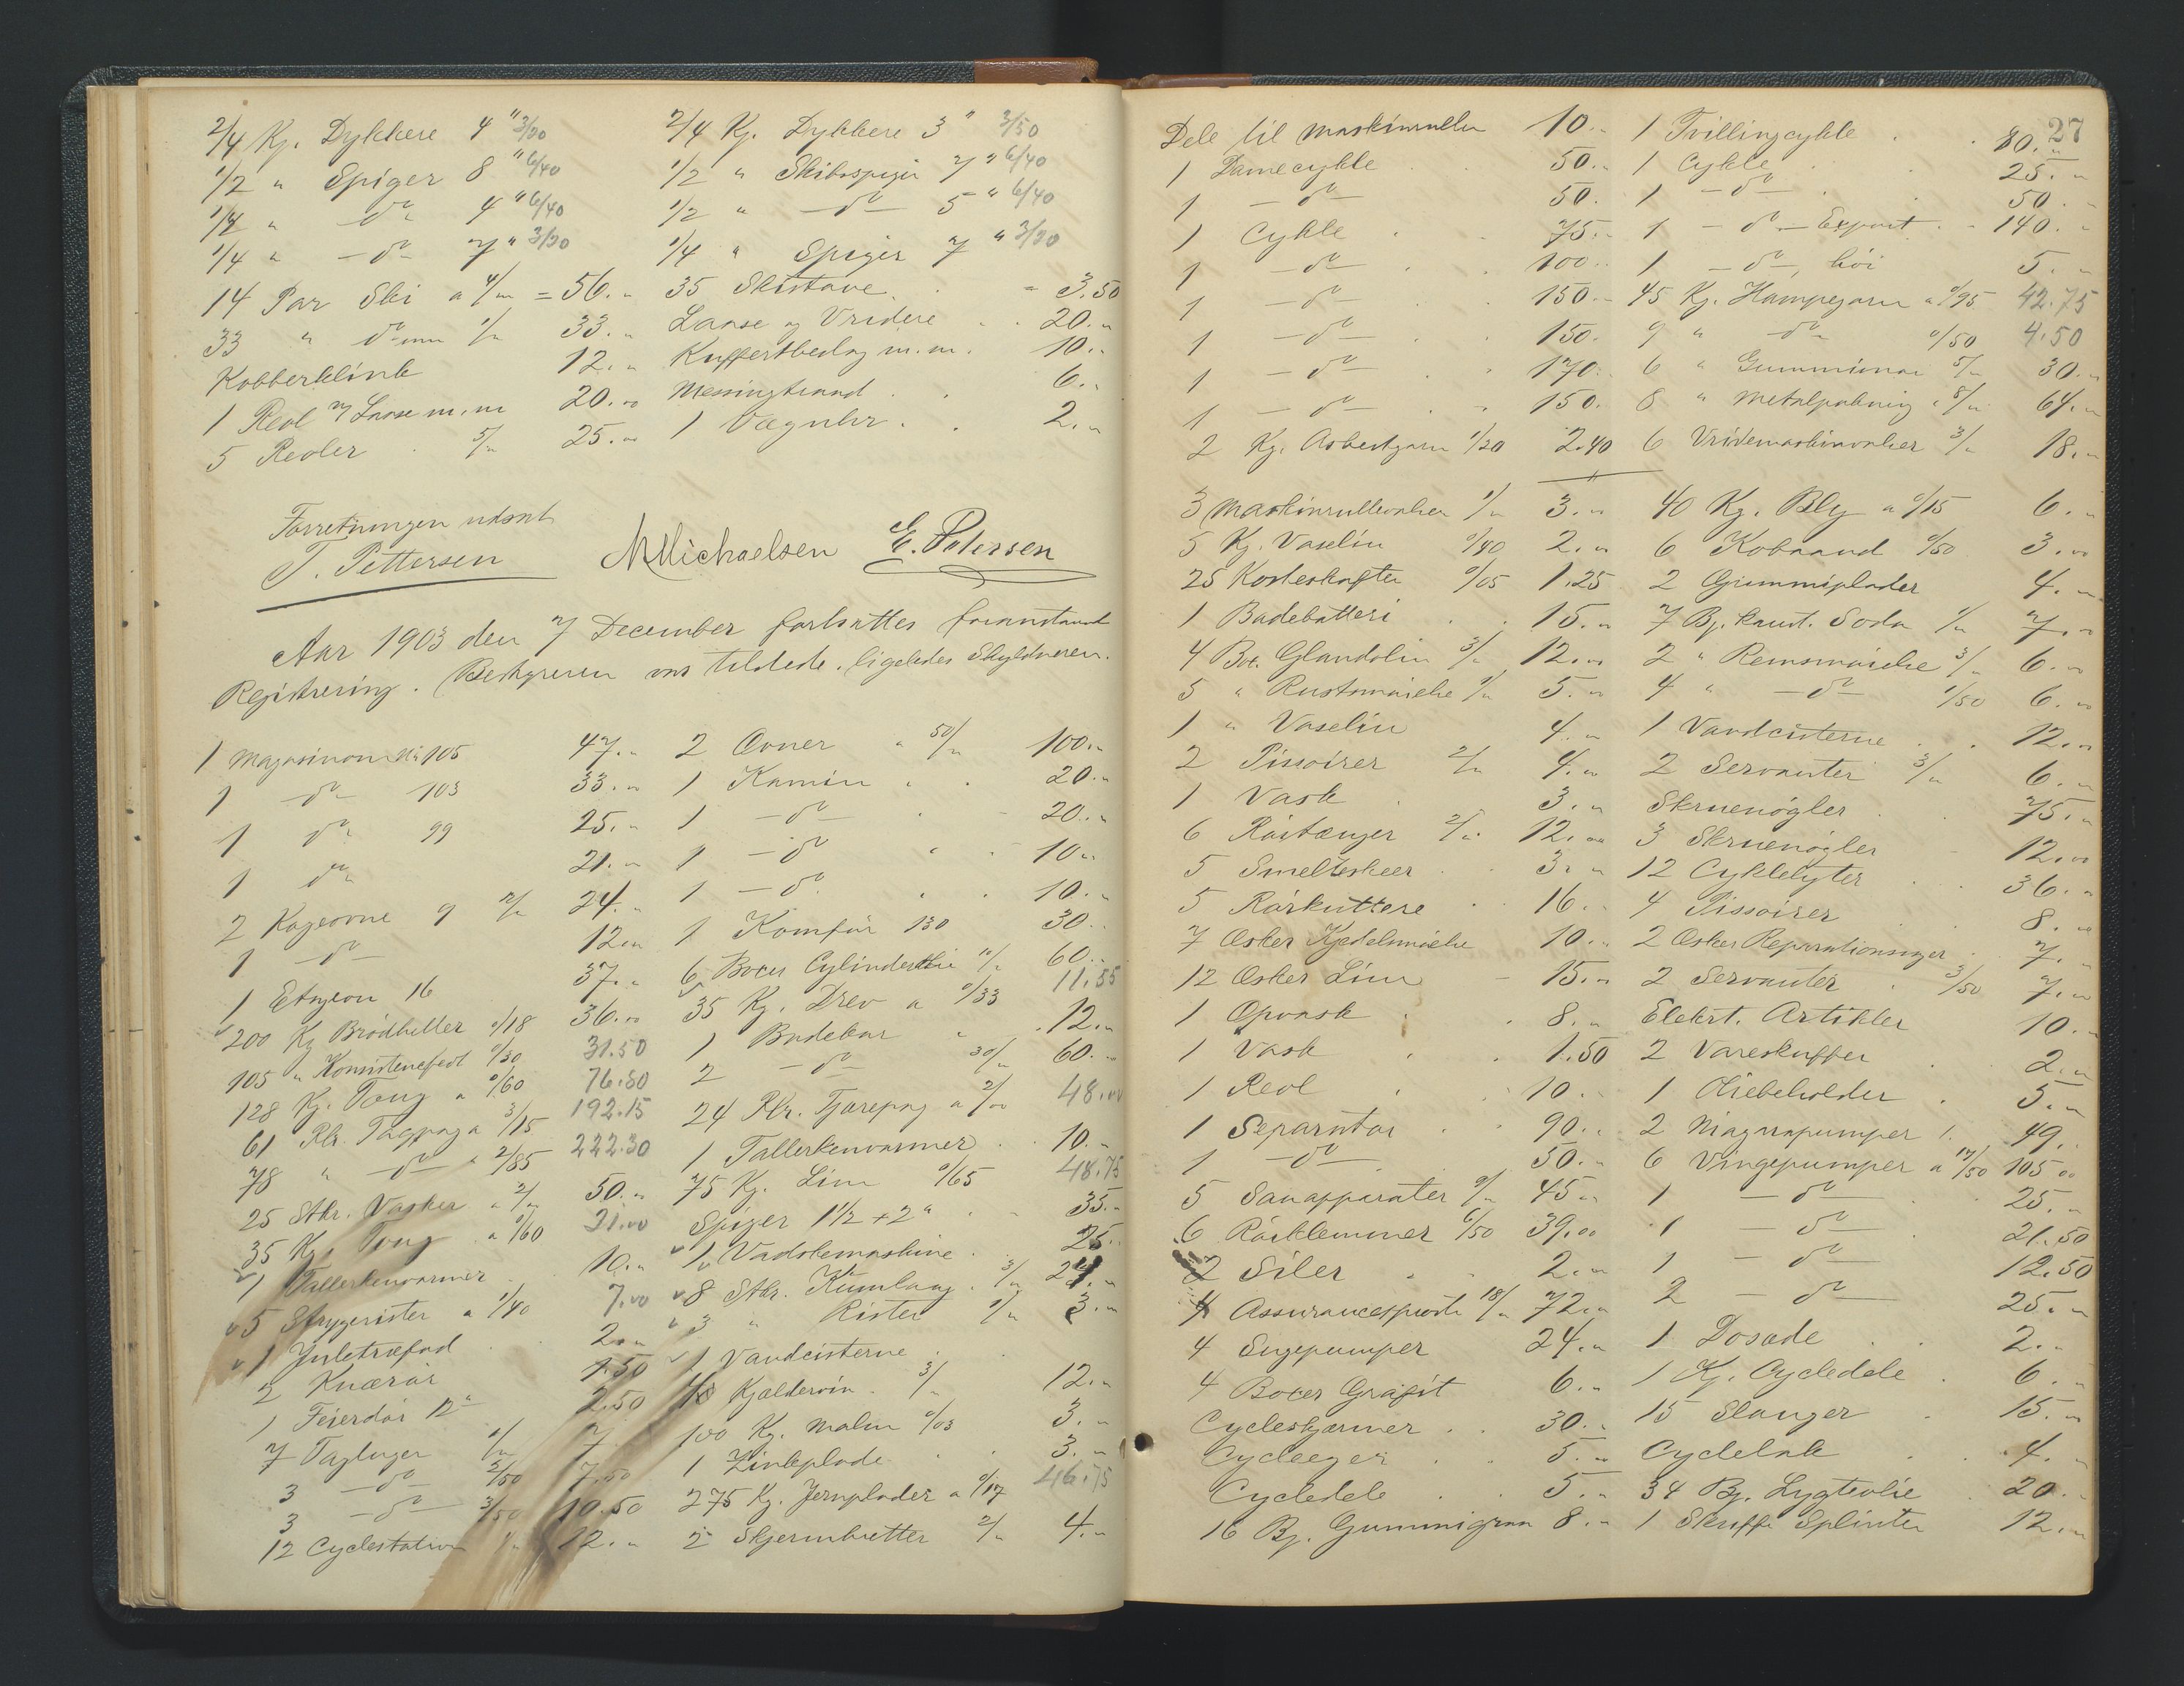 2/4 Kg. Dykkere 4" 3/20 2/4 Kg. Dykkere 3" 3/50
1/2 " Spiger 8" 6/40 1/2 " Skibsspiger 7" 6/40
1/4 " - do - 4" 6/40 1/2 " - do - 5" 6/40
1/4 " - do - 7" 3/20 1/4 " Spiger 7" 3/20
14 Par Ski a 4/" = 56." 35 Skistave - 3.50
33 " do 1/" 33." Laase og Vridere 20."
Kobberklink 12." Kuffertbeslag m.m. 10."
1 Reol m/ Laase m.m 20." Messingtraad 6."
5 Reoler 5/" 25." 1 Væguhr 2."
Forretningen udsat
T. Pettersen M Michaelsen E. Petersen
Aar 1903 den 7 December fortsattes foranstaaende
Registrering. Bestyreren var tilstede, ligeledes Skyldneren.
1 Magasinovn No 105 47." 2 Ovner a 50/" 100."
1 - do - 103 33." 1 Kamin 20."
1 do 99 25." 1 - do - 20."
1 do 21." 1 - do - 10."
2 Kogeovne 9 12/" 24." 1 - do - 10."
1 - do - 12." 1 Komfur 130 30."
1 Etageovn 16 37." 6 Boxer Cylinderolie 10/" 60."
200 Kg Brødheller 0/18 36." 35 Kg. Drev a 0/33 11.55
105 " Konsistensfedt 0/30 31.50 1 Badekar 12."
128 Kg. Toug a 0/60 76.80 2 - do - 30/" 60."
61 Rlr. Tagpap a 3/15 192.15 24 Rlr. Tjærepap a 2/00 48.00
78 " - do - a 2/85 222.30 1 Tallerkenvarmer 10."
25 Stkr. Vasker a 2/" 50." 75 Kg. Lim 0/65 48.75
35 Kg. Toug a 0/60 21.00 Spiger 1 1/2 + 2" 35."
1 Tallerkenvarmer 10." 1 Vadskemaskine 25."
5 Strygerister a 1/40 7.00 8 Stkr. 3/" 24."
1 Juletræfod 2." 3 " Rister 1/" 3."
2 Knærør 1.50 1 Vandcisterne
1 Feierdør 12" 2.50 Kjældervin. 3/ 12."
7 Tagluger 1/" 7. 100 Kg. Malm 0/03 3."
3 - do - 2/50 7.50 1 Zinkplade 3."
3 - do - 3/50 10.50 275 Kg. Jernplader a 0/17 46.75
12 Cyclestativer 1/" 12." 2 Skjermbretter 2/" 4."
27
Dele til Maskinruller 10." 1 Tvillingcykle 80."
1 Damecykle 50." 1 Cykle 25."
1 - do - 50. 1 - do - 50."
1 Cykle 75." 1 - do - Export 140."
1 - do - 100." 1 - do -, høi 5."
1 - do - 150." 45 Kg. Hampegarn a 0/95 42.75
1 - do - 150. 9 " - do - 0/50 4.50
1 - do - 170." 6 " 5/" 30."
1 - do - 150. 8 " Metalpakning a 8/" 64."
2 Kg. Asbestgarn 1/20 2.40 6 Vridemaskinvalser 3/" 18."
3 Maskinrullevalser 1/" 3." 40 Kg. Bly a 0/15 6."
5 Kg. Vaselin 0/40 2." 6 0/50 3."
25 Kosteskafter 0/05 1.25 2 Gummiplader 4."
1 Badebatteri 15." 7 Bx. kaust. Soda 1/" 7."
4 Box. Glandolin 3/" 12." 2 " Remsmørelse 3/" 6."
5 " Rustsmørelse 1/" 5." 4 " - do - 1/50 6."
1 " Vaselin 4." 1 Vandcisterne 12."
2 Pissoirer 2/" 4." 2 Servanter 3/" 6."
1 Vask 3." Skruenøgler 75."
6 Rørtænger 2/" 12." 3 Skruenøgler 12."
5 Smelteskeer 3." 12 Cyklelygter 36."
5 Rørkuttere 16." 4 Pissoirer 8."
7 Æsker Kjedelsmørelse 10." 2 Æsker Reparationssager 7."
12 Æsker Lim 15." 2 Servanter 3/50 7."
1 Opvask 8." Elekrt. Artikler 10."
1 Vask 1.50 2 Vareskuffer 2."
1 Reol 10." 1 Oliebeholder 5."
1 Separator 90." 2 Niagarapumper 49."
1 - do - 50." 6 Vingepumper a 17/50 105.00
5 Sanapparater 9/" 45." 1 - do - 25."
6 Rørklemmer 6/50 39.00 1 - do - 21.50
2 Siler 2." 1 - do - 12.50
4 18/" 72." 2 - do - 25."
4 Sugepumper 24." 1 Dosæde 2."
4 Boxer Grafit 6." 1 Kg. Cycledele 6."
Cycleskjærmer 30." 15 Slanger 15."
Cycleeger 5." Cyclelak 4."
Cycledele 5." 34 Bx. Lygteolie 20."
16 Bx. 8." 1 Skuffe Splinter 12."